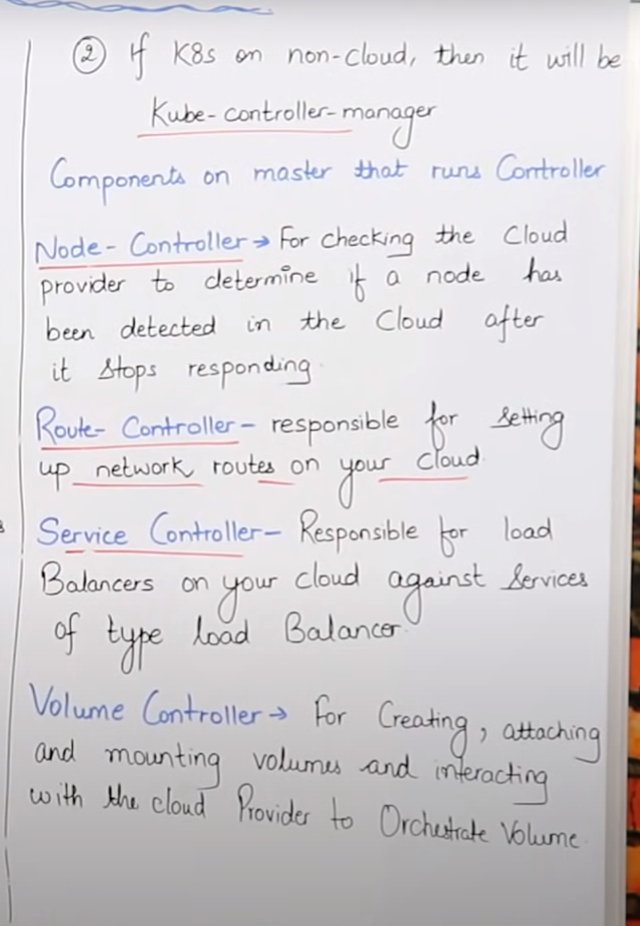 ② If K8s on non-cloud, then it will be
Kube-controller-manager
Components on master that runs Controller
Node-Controller → For checking the Cloud
provider to determine if a node has
been detected in the Cloud after
it stops responding.
Route-Controller - responsible for setting
up network routes on your cloud.
Service Controller - Responsible for load
Balancers on your cloud against Services
of type load Balancer.
Volume Controller → For Creating, attaching
and mounting volumes and interacting
with the cloud Provider to Orchestrate Volume.